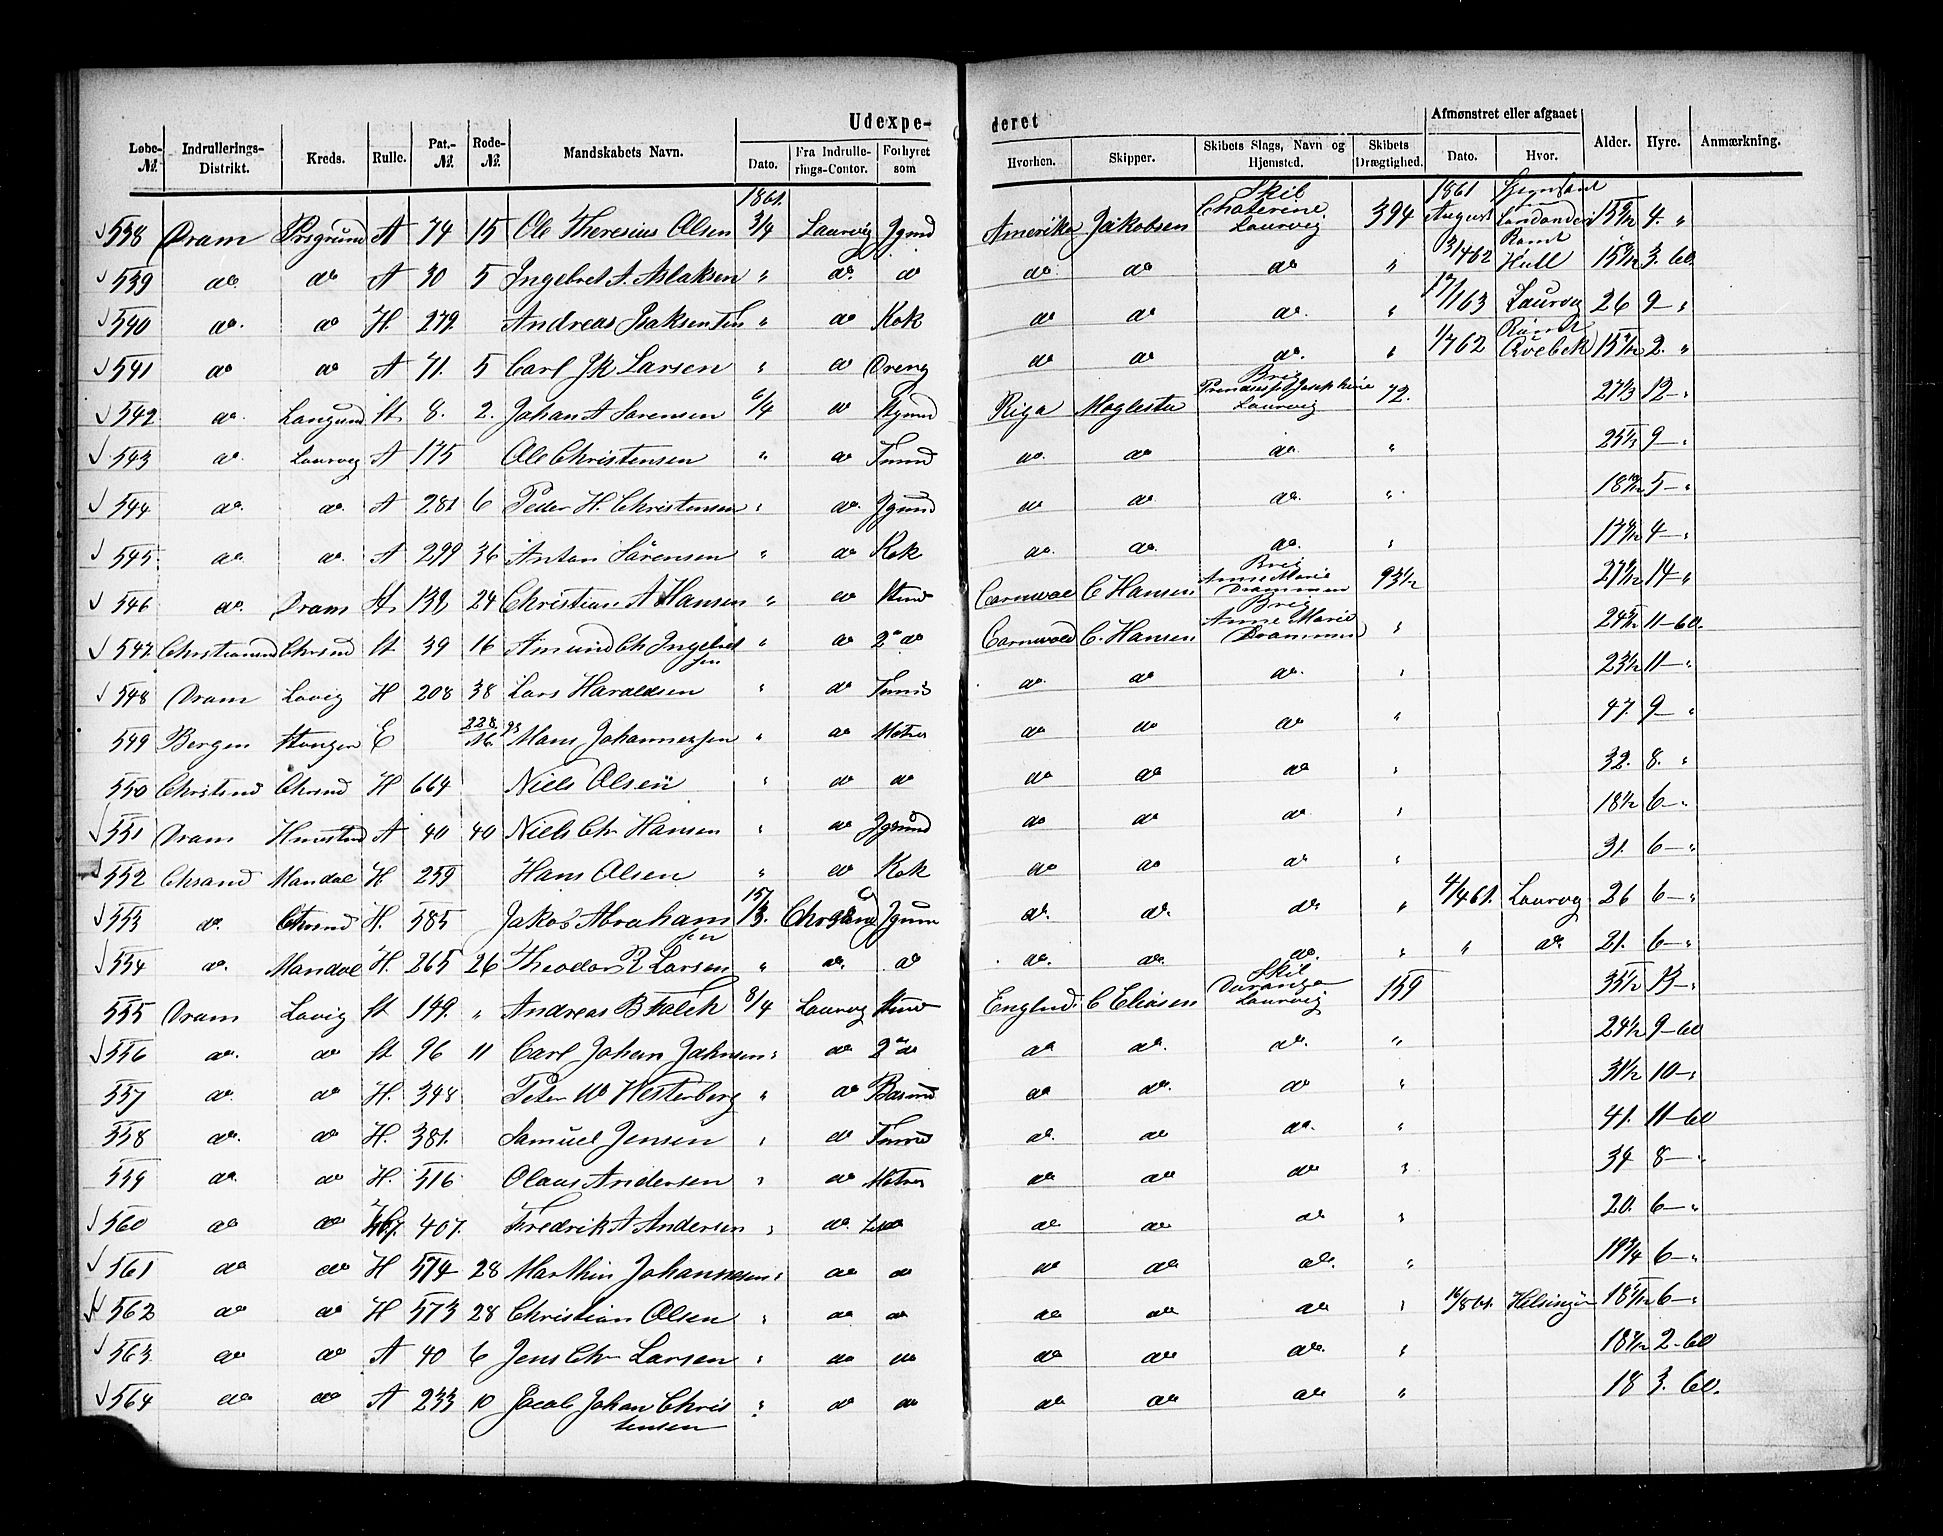 Udexpe- deret
Løbe-№. Indrullerings-Distrikt. Kreds. Rulle. Pat.-№. Rode-№. Mandskabets Navn. Dato. Fra Indrulle-rings-Contor. Forhyret som Hvorhen. Skipper. Skibets Slags, Navn og Hjemsted. Skibets Drægtighed. Afmønstret eller afgaaet Dato. Hvor. Alder. Hyre. Anmærkning.
1861. Skib 1861
538 Dram Prsgrund A 74 15 Ole Theresius Olsen 3/4 Laurvig Jgmd Amerika Jakobsen Chaterine Laurvig 394 August 4. "
539 do do A 30 5 Ingebret A. Aslaksen " do. do do do do " Rømt Hull 3. 60
540 do. do H. 279. Andreas Isaksen " do Kok do do do. " Laurvig 26 9 – "
541 do do A 71. 5 Carl Larsen " do Dreng do do do. " 1/7 62 Rømt Qvebek 2. "
542 do. Langsund St. 8. 2. Johan A Sørensen 6/4 do Riga Brig Josephine Laurvig 72. 12 – "
543 do. Laurvig A 175 Ole Christensen " do Tmnd do. do do. " 9 – "
544 do. do. A 281 6 Peder H. Christensen " do. Jgmnd do do do. " 5 – "
545 do. do. A 299 36 Anton Sørensen " do Kok do. do. do. " 4 – "
546 do. Dram St. 132 24 Christian A Hansen " do Stmd Carnwal C Hansen Brig Anne Marie Drammen 93½ 14 – "
547 Christiansnd Chrsnd St 39 16 Amund Ch Ingebret sen " do 2d do Carnwald C. Hansen Brig Anne Marie Drammen " 11 – 60.
548 Dram Lavig H 208 38 Lars Haraldsen " do do. do do. " 11 – "
549 Bergen Stanger E 228 Hans Johannessen " do Matros do do do " 47. 9 – "
550 Christsnd Chrsnd H 664 Niels Olsen " do do do do do " 32. 8. "
551 Dram Hmestrnd A 40 40 Niels Chr Hansen " do Jgmnd do do do " 18½ 6 – "
552 Chsand Mandal H. 259 Hans Olsen " do Kok do do do " 31. 6 – "
553 do. Chrsnd H. 585 Jakob Abraham sen 15/3. Chrsand Jgmn do. do. do " 4/4 61. Laurvg 26 6 – "
554 do. Mandal H. 265 26 Theodor R Larsen " do. do do. do. do. " " do. 21. 6 – "
555 Dram Lavig St 149. " Andreas B Falch 8/4 Laurvg Stmd Englnd. C Eliasen Skib Laurvig 159 13 – "
556 do. do St 96 11 Carl Johan Jahnsen " do 2d do do do. do. " 9 – 60
557 do. do H. 348 Peter W Westerberg " do do do. do " 31½ 10 – "
558 do. do H. 381. Samuel Jensen " do Tmnd do. do do. " 41. 11 – 60
559 do. do H. 516 Olaus Andersen " do Matros do do do " 34 8 – "
560 do do 407. Fredrik A Andersen " do. do do do " 20. 6 – "
561 do do H 574 28 Marthin Johannesen " do do do do do. " 19¾ 6 – "
562 do do H 573 28 Christian Olsen " do do do do do " Helsingør 6 – "
563 do do A 40 6 Jens Chr Larsen " do do do do do. " 2. 60
564 do do A 233 10 Jacob Johan Chris tensen " do do do do do " 18 3. 60.